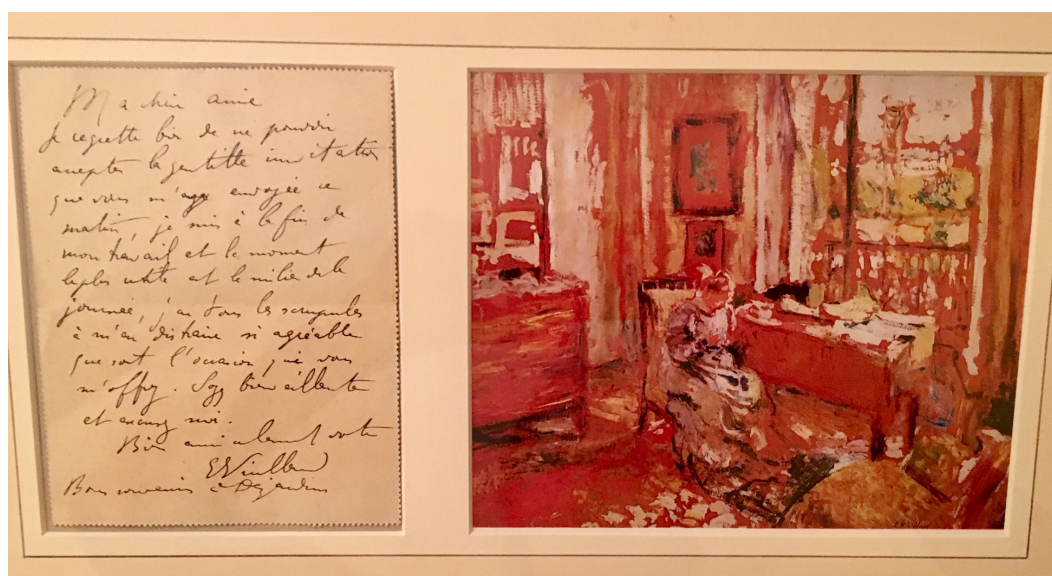 Ma chère amie
Je regrette bien de ne pouvoir
accepter la gentille invitation
que vous m'avez envoyée ce
matin, je suis à la fin de
mon travail et le moment
le plus utile est le milieu de la
journée, j'ai donc les scrupules
à m'en distraire si agréable
que soit l'occasion que vous
m'offrez. Soyez bienveillante
et excusez moi.
Bien amicalement votre
E Vuillard
Bons souvenirs à Desjardins